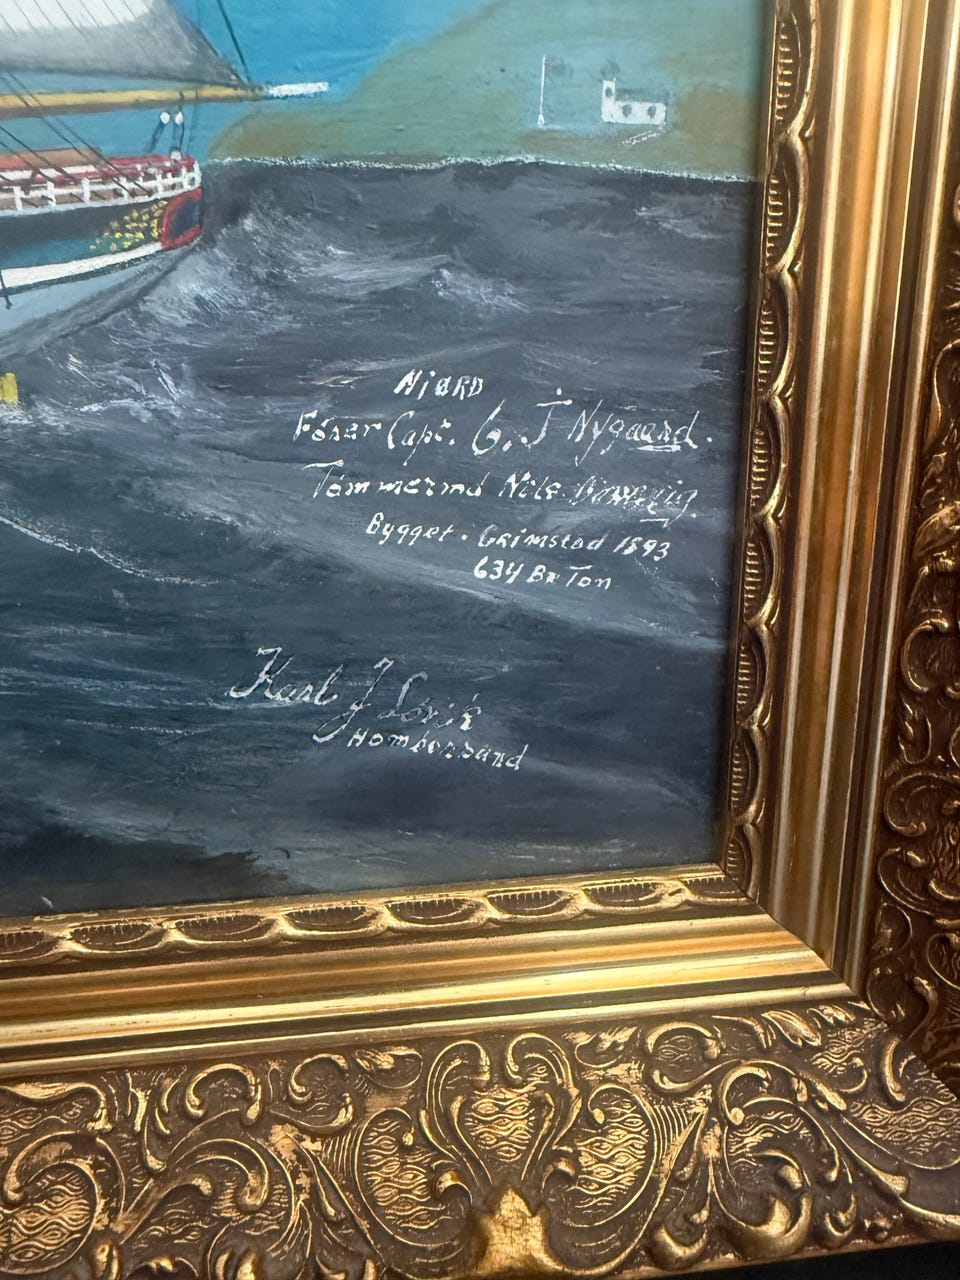 NIØRD
Fører Capt. G. J Nygaard.
Tømmermd Nils
Bygget. Grimstad 1893
634 Br Ton
Karl J Lovik
Homborsund